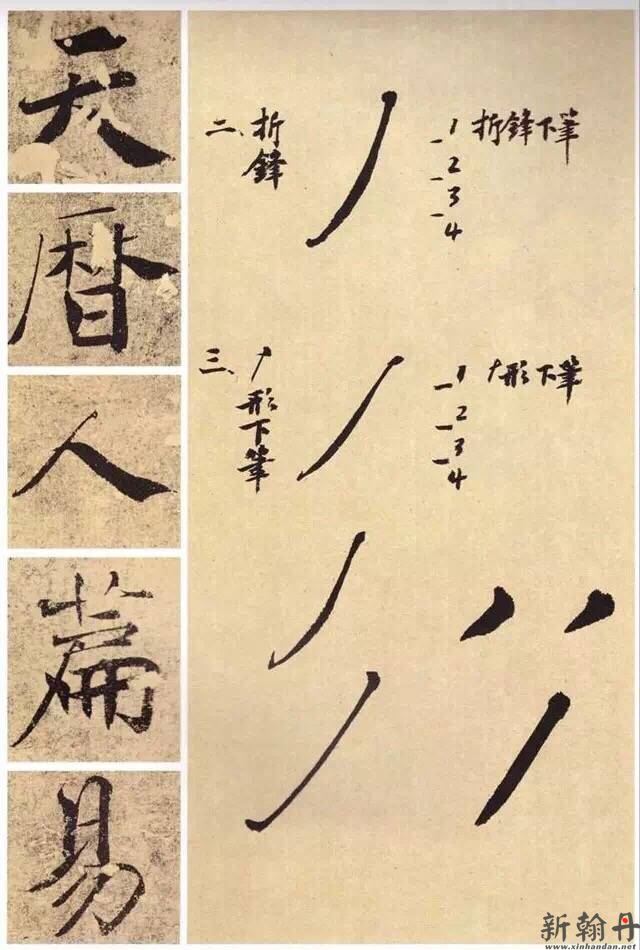 天
暦
人
萹
易
二、折鋒
1 折鋒下筆
2
3
4
三、形下筆
1 形下筆
2
3
4
新翰丹
www.xinhandan.net